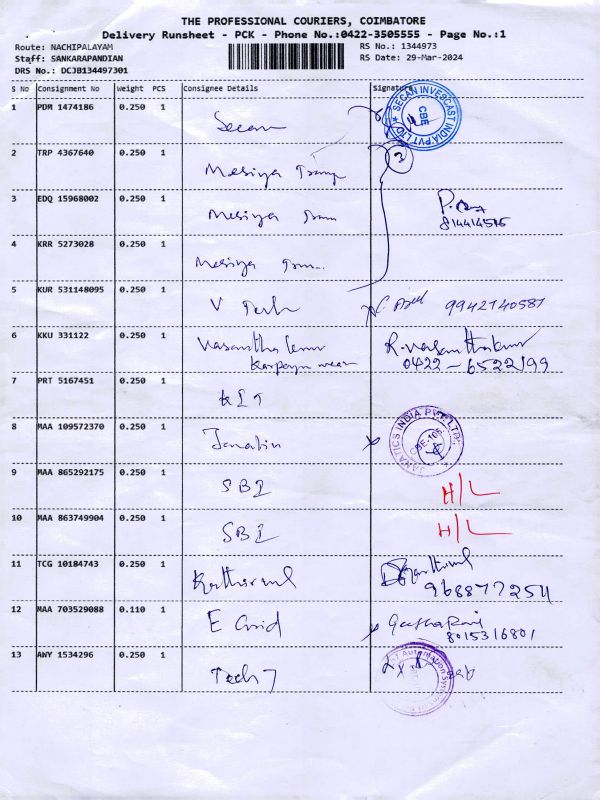 THE PROFESSIONAL COURIERS, COIMBATORE
Delivery Runsheet - PCK - Phone No.:0422-3505555 - Page No.:1
Route: NACHIPALAYAM
RS No.: 1344973
Staff: SANKARAPANDIAN
RS Date: 29-Mar-2024
DRS No.: DCJB134497301
S No Consignment No Weight PCS Consignee Details Signature
1 PDM 1474186 0.250 1 Secan
SECAN INVESCAST INDIA PVT LTD CBE
2 TRP 4367640 0.250 1 Mesiya
3
3 EDQ 15968002 0.250 1 Mesiya
4 KRR 5273028 0.250 1 Mesiya
5 KUR 531148095 0.250 1 V
9942740581
6 KKU 331122 0.250 1
R. Vasanthakumar
7 PRT 5167451 0.250 1
8 MAA 109572370 0.250 1 Janatin
JANATICS INDIA PVT LTD
9 MAA 865292175 0.250 1 SBI H/L
10 MAA 863749904 0.250 1 SBI H/L
11 TCG 10184743 0.250 1 Kathirvel
9688772511
12 MAA 703529088 0.110 1 E
8015316801
13 AWY 1534296 0.250 1 Tech 7
Automation Systems